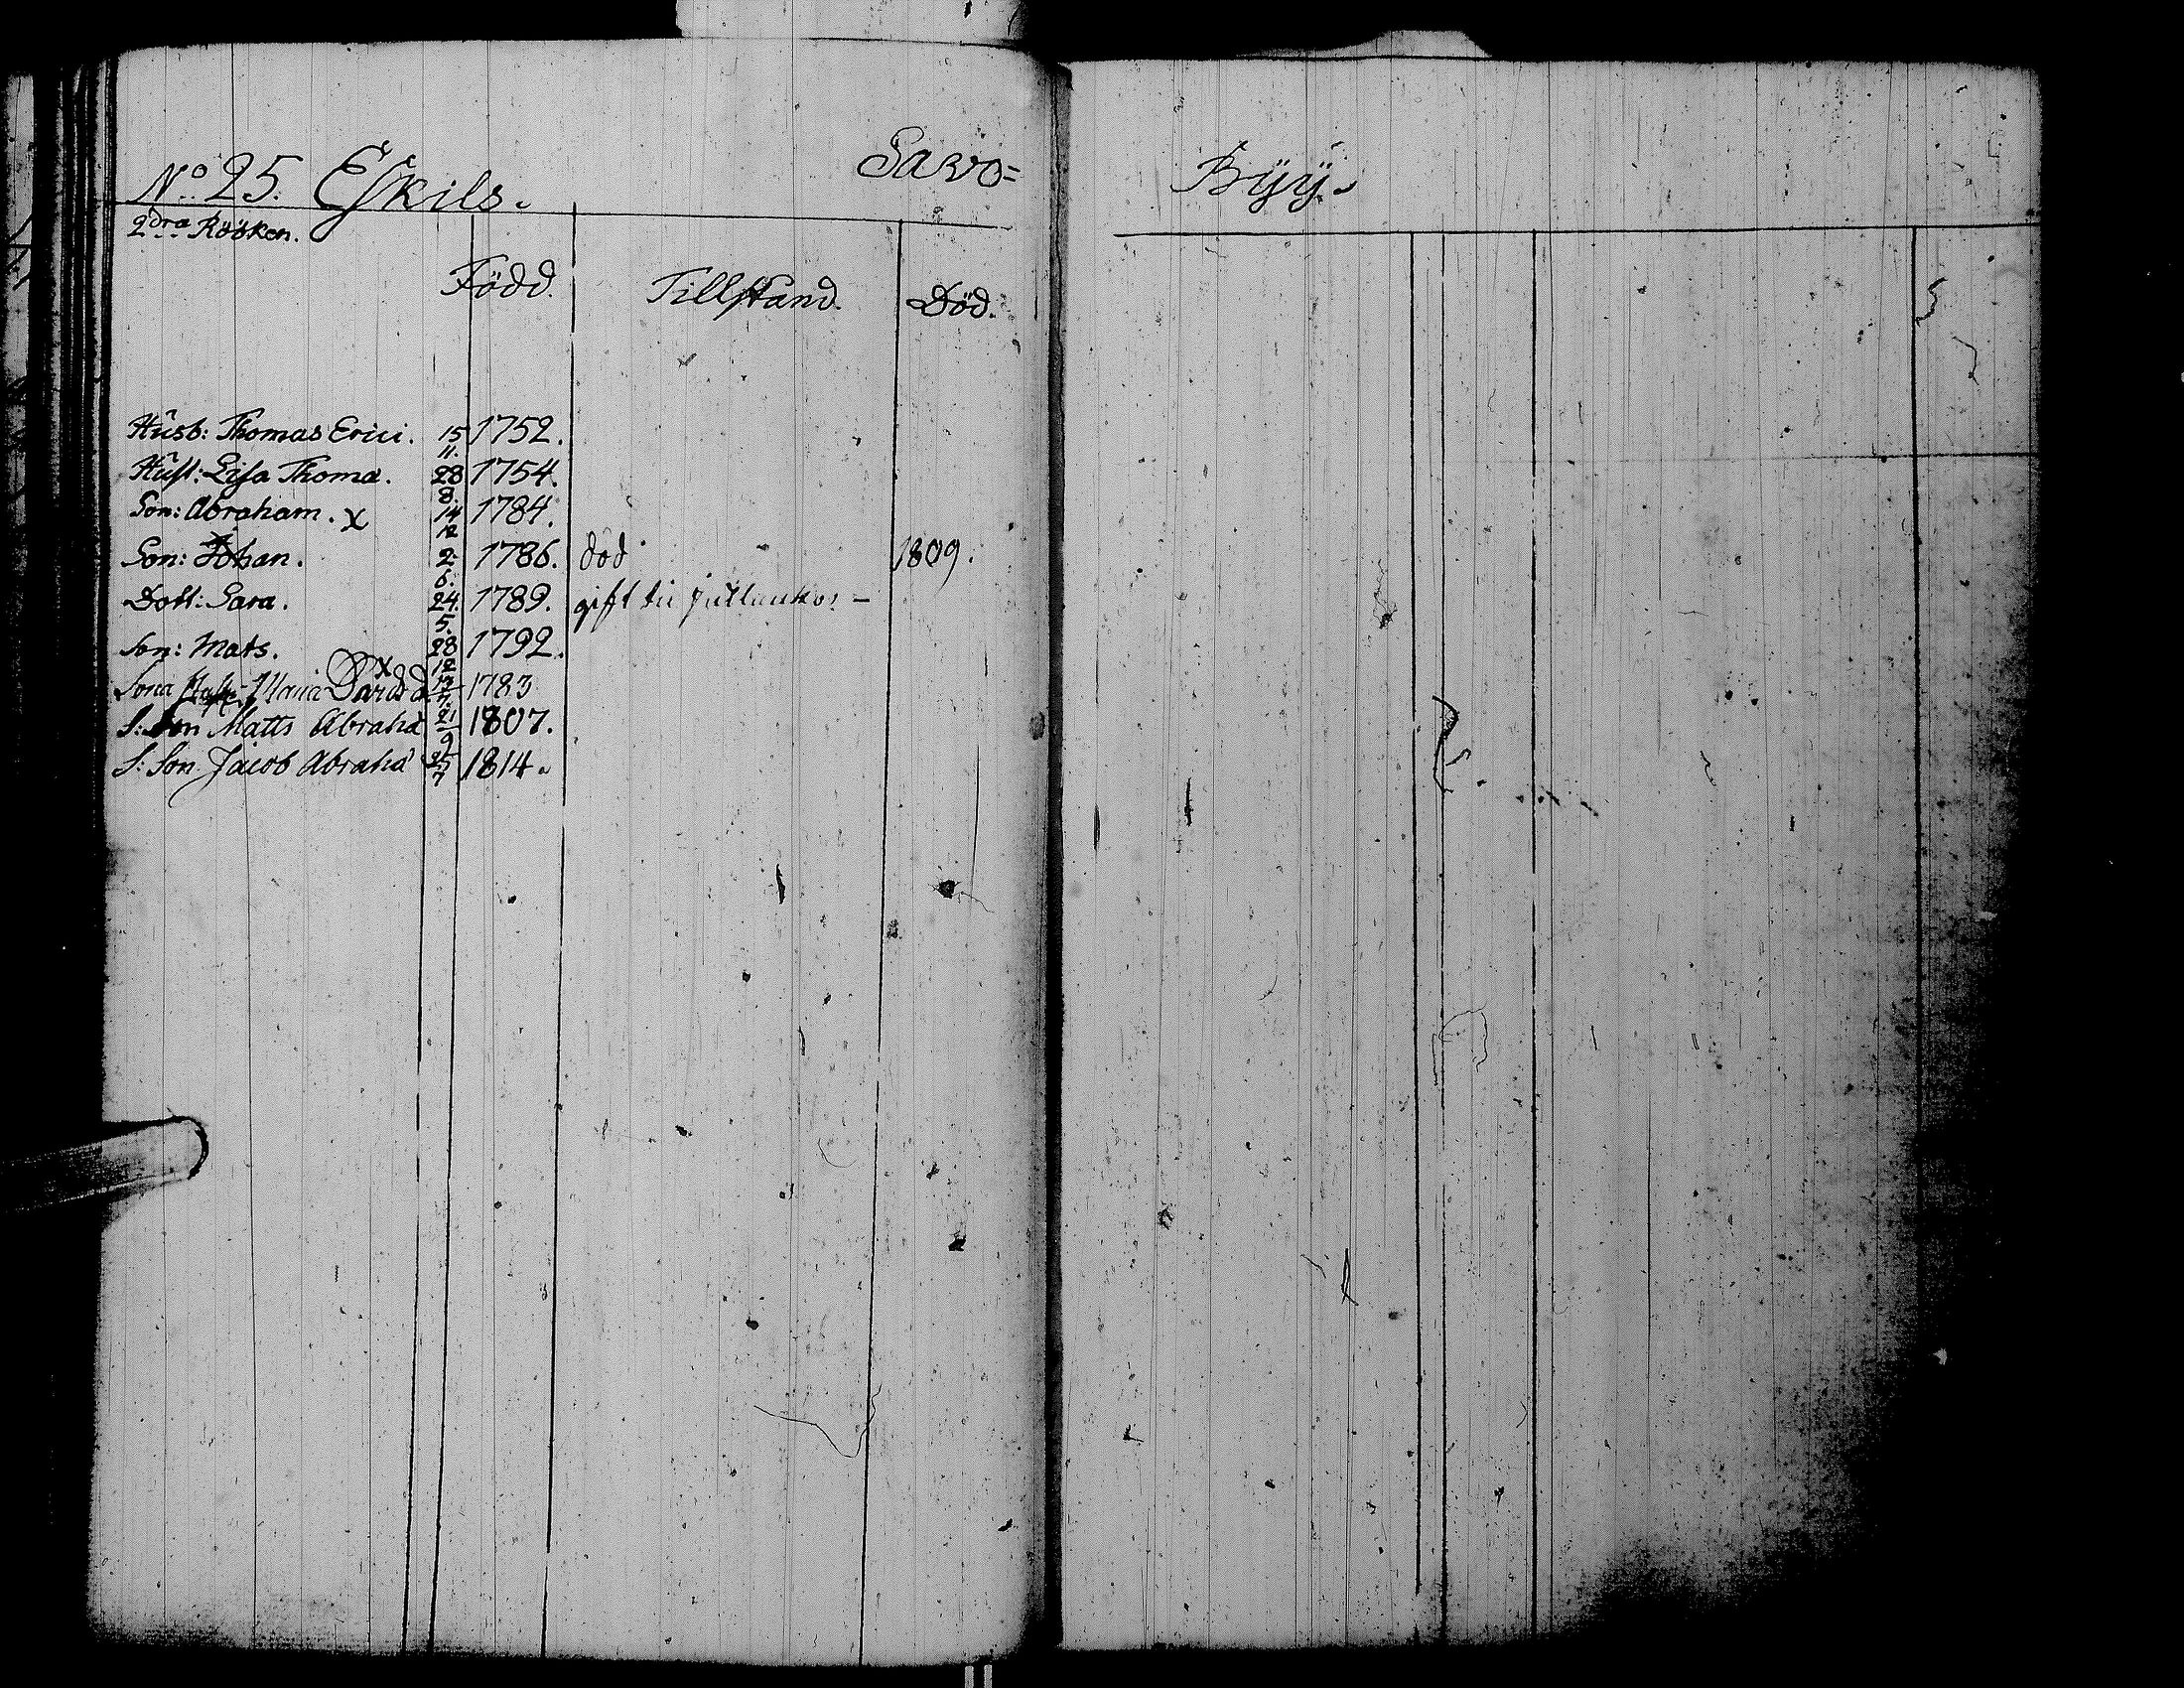 Savo= Byÿ.
No 25. Eskils.
2dra Rööken.
Född. Tillstand. Död.
Husb: Thomas Erici. 15/11. 1752.
Hust: Lisa Thoma. 28/8. 1754.
Son: Abraham. x 14/12 1784.
Son: Johan. 2/6. 1786. död 1809.
Dott: Sara. 24./5. 1789. gift
Son: Mats. 28/12 1792.
Sona Hust: Maria Davids d. x 13/7. 1783
S: Son Matts Abraha 21/9 1807.
S: Son Jacob Abraha 25/7 1814.